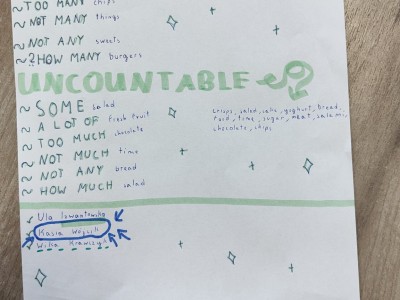 ~TOO MANY chips
~NOT MANY things
~NOT ANY sweets
~?HOW MANY burgers
UNCOUNTABLE
~ SOME salad
~ A LOT OF fresh fruit
~ TOO MUCH chocolate
~ NOT MUCH time
~ NOT ANY bread
~ HOW MUCH salad
crisps, salad, cake, yoghurt, bread,
food, time, sugar, meat, salami,
chocolate, chips
Ula
Kasia Wójcik
Wika Krawczyk